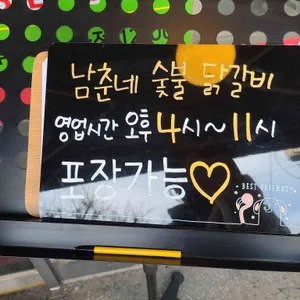 남춘네 숯불 닭갈비
영업시간 오후 4시~11시
포장가능♡
BEST FRIENDS